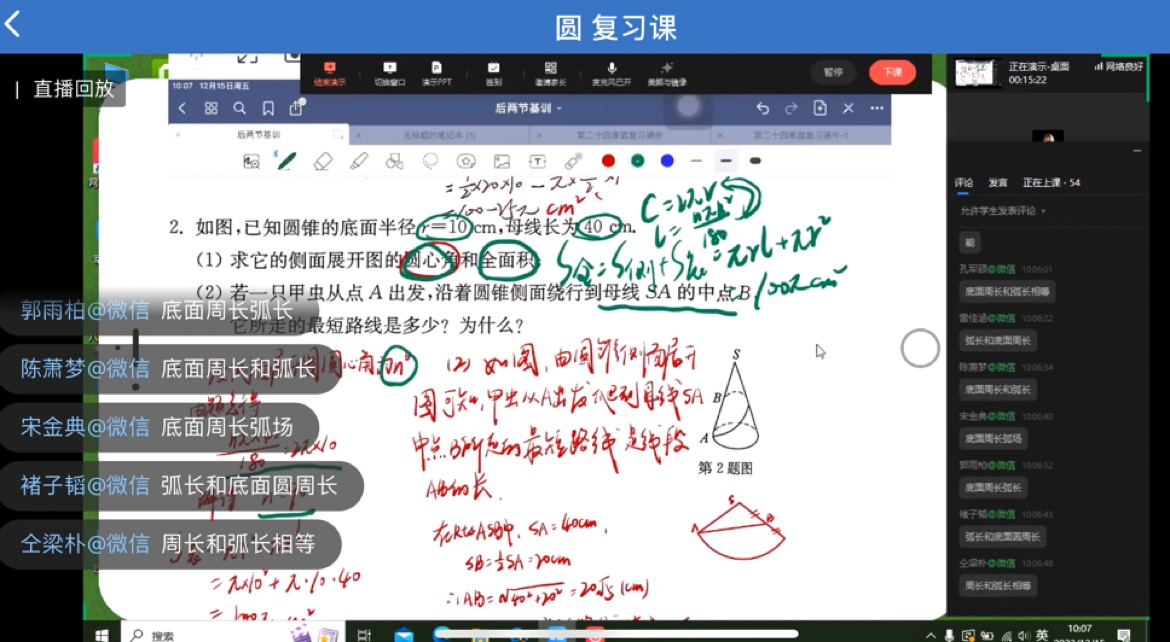 圆 复习课
直播回放
结束演示 切换窗口 演示PPT 签到 邀请家长 麦克风已开 美颜与镜像 暂停 下课
正在演示-桌面 网络良好
00:15:22
10:07 12月15日周五
后两节基训
后两节基训 无标题的笔记本 (1) 第二十四章圆复习课件 第二十四章圆复习课件-1
=100-25π cm²
C=2πr
2. 如图,已知圆锥的底面半径 r=10 cm,母线长为 40 cm.
(1) 求它的侧面展开图的圆心角和全面积;
S全=S侧+S底=πrl+πr²
(2) 若一只甲虫从点 A 出发,沿着圆锥侧面绕行到母线 SA 的中点 B,
它所走的最短路线是多少? 为什么?
(2) 如图,由圆锥侧面展开
图可知,甲虫从A出发绕到母线SA
中点B所走的最短路线是线段
AB的长.
在Rt△ASB中, SA=40cm,
SB=½SA=20cm
∴AB=√40²+20²=20√5 (cm)
=π×10²+π·10·40
S
B
A
第 2 题图
S
A
B
郭雨柏@微信 底面周长弧长
陈萧梦@微信 底面周长和弧长
宋金典@微信 底面周长弧场
褚子韬@微信 弧长和底面圆周长
仝梁朴@微信 周长和弧长相等
评论 发言 正在上课·54
允许学生发表评论
能
孔军硕@微信 10:06:01
底面周长和弧长相等
雷佳涵@微信 10:06:22
弧长和底面周长
陈萧梦@微信 10:06:34
底面周长和弧长
宋金典@微信 10:06:40
底面周长弧场
郭雨柏@微信 10:06:32
底面周长弧长
褚子韬@微信 10:06:43
弧长和底面圆周长
仝梁朴@微信 10:06:48
周长和弧长相等
搜索
英
10:07